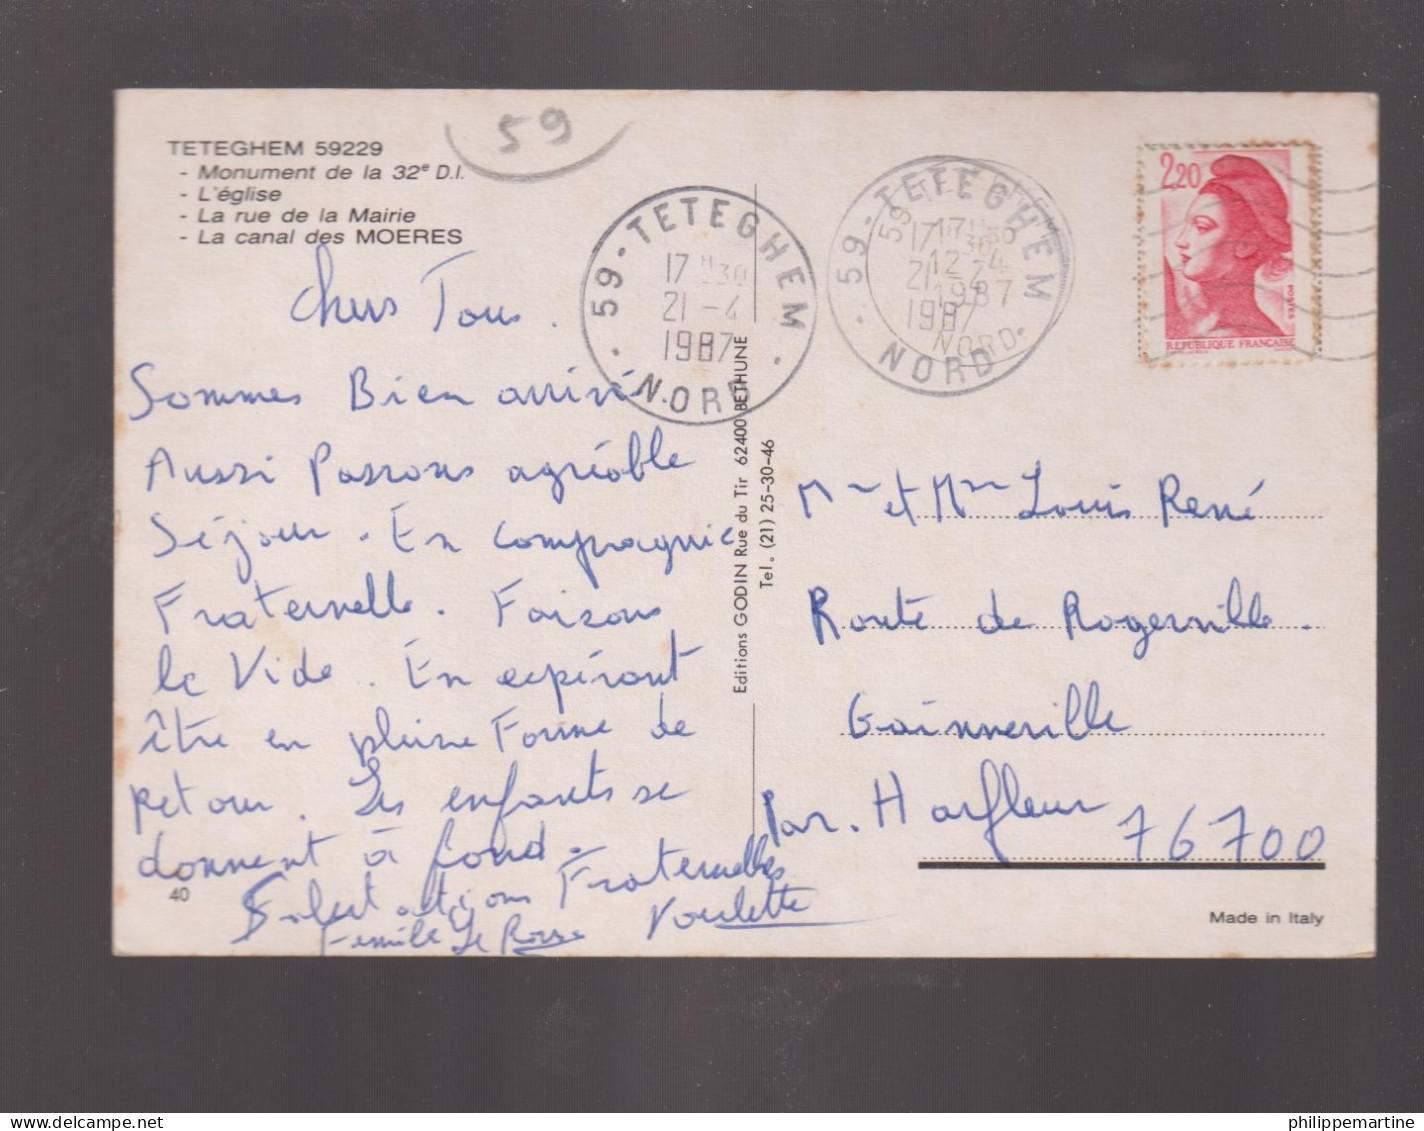 TETEGHEM 59229
- Monument de la 32e D.I.
- L'église
- La rue de la Mairie
- La canal des MOERES
59
59 - TETEGHEM
17 H 30
21 - 4
1987
NORD
59 - TETEGHEM
17 H 30
21 - 4
1987
NORD
12 - 4
1987
NORD
2,20
POSTES
REPUBLIQUE FRANCAISE
Chers Tous.
Sommes Bien arrivé.
Aussi Passons agréable
Séjour. En compagnie
Fraternelle. Faisons
le Vide. En espérant
être en pleine Forme de
retour. Les enfants se
donnent à fond.
Salutations Fraternelles
Famille Le
Editions GODIN Rue du Tir 62400 BETHUNE
Tel. (21) 25-30-46
Mr et Mme Louis René
Route de Rogerville.
Gainneville
Par. Harfleur 76700
40
Made in Italy
philippemartine